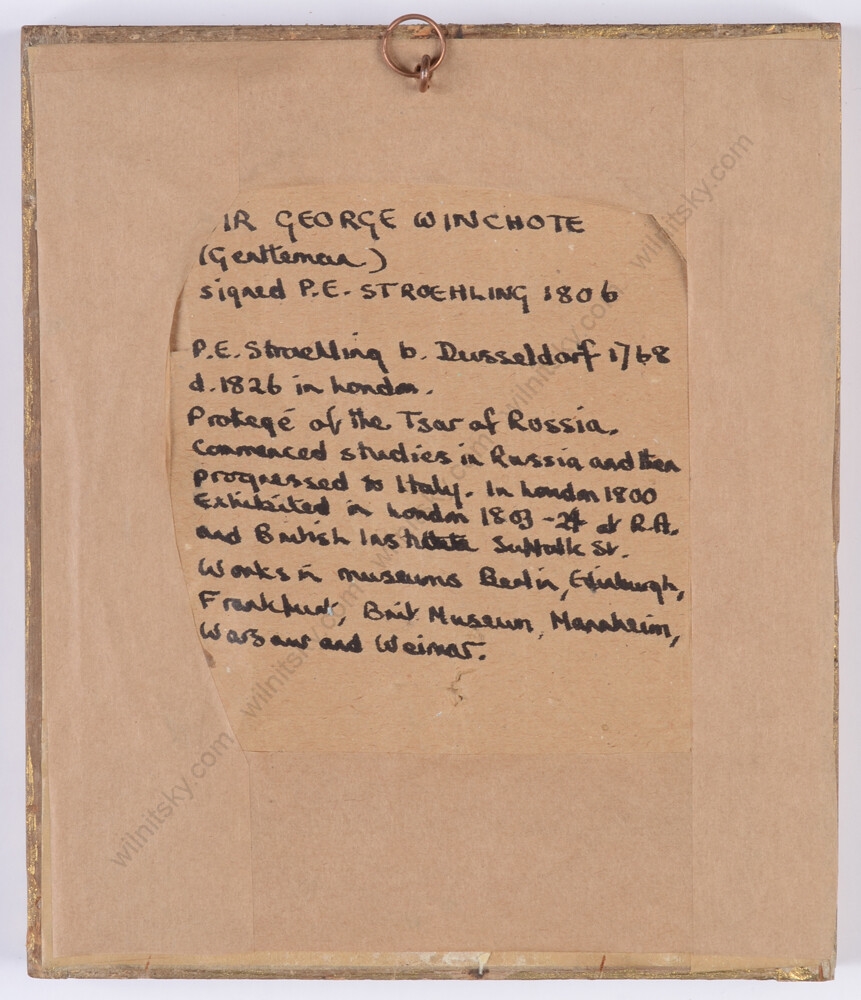 IR GEORGE WINCHOTE
(Gentleman)
signed P.E. STROEHLING 1806
P.E. Stroehling b. Dusseldorf 1768
d. 1826 in London.
Protegé of the Tsar of Russia.
Commenced studies in Russia and then
progressed to Italy. In London 1800
Exhibited in London 1803-24 at R.A.
and British Institute Suffolk St.
Works in museums Berlin, Edinburgh,
Frankfurt, Brit Museum, Mannheim,
Warsaw and Weimar.
wilnitsky.com
wilnitsky.com
wilnitsky.com
wilnitsky.com
wilnitsky.com
wilnitsky.com